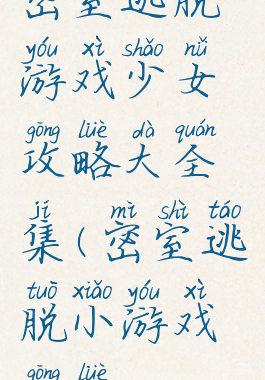 密室逃脱
yóu xì shǎo nǚ
游戏少女
gōng lüè dà quán
攻略大全
jí mì shì táo
集(密室逃
tuō xiǎo yóu xì
脱小游戏
gōng lüè